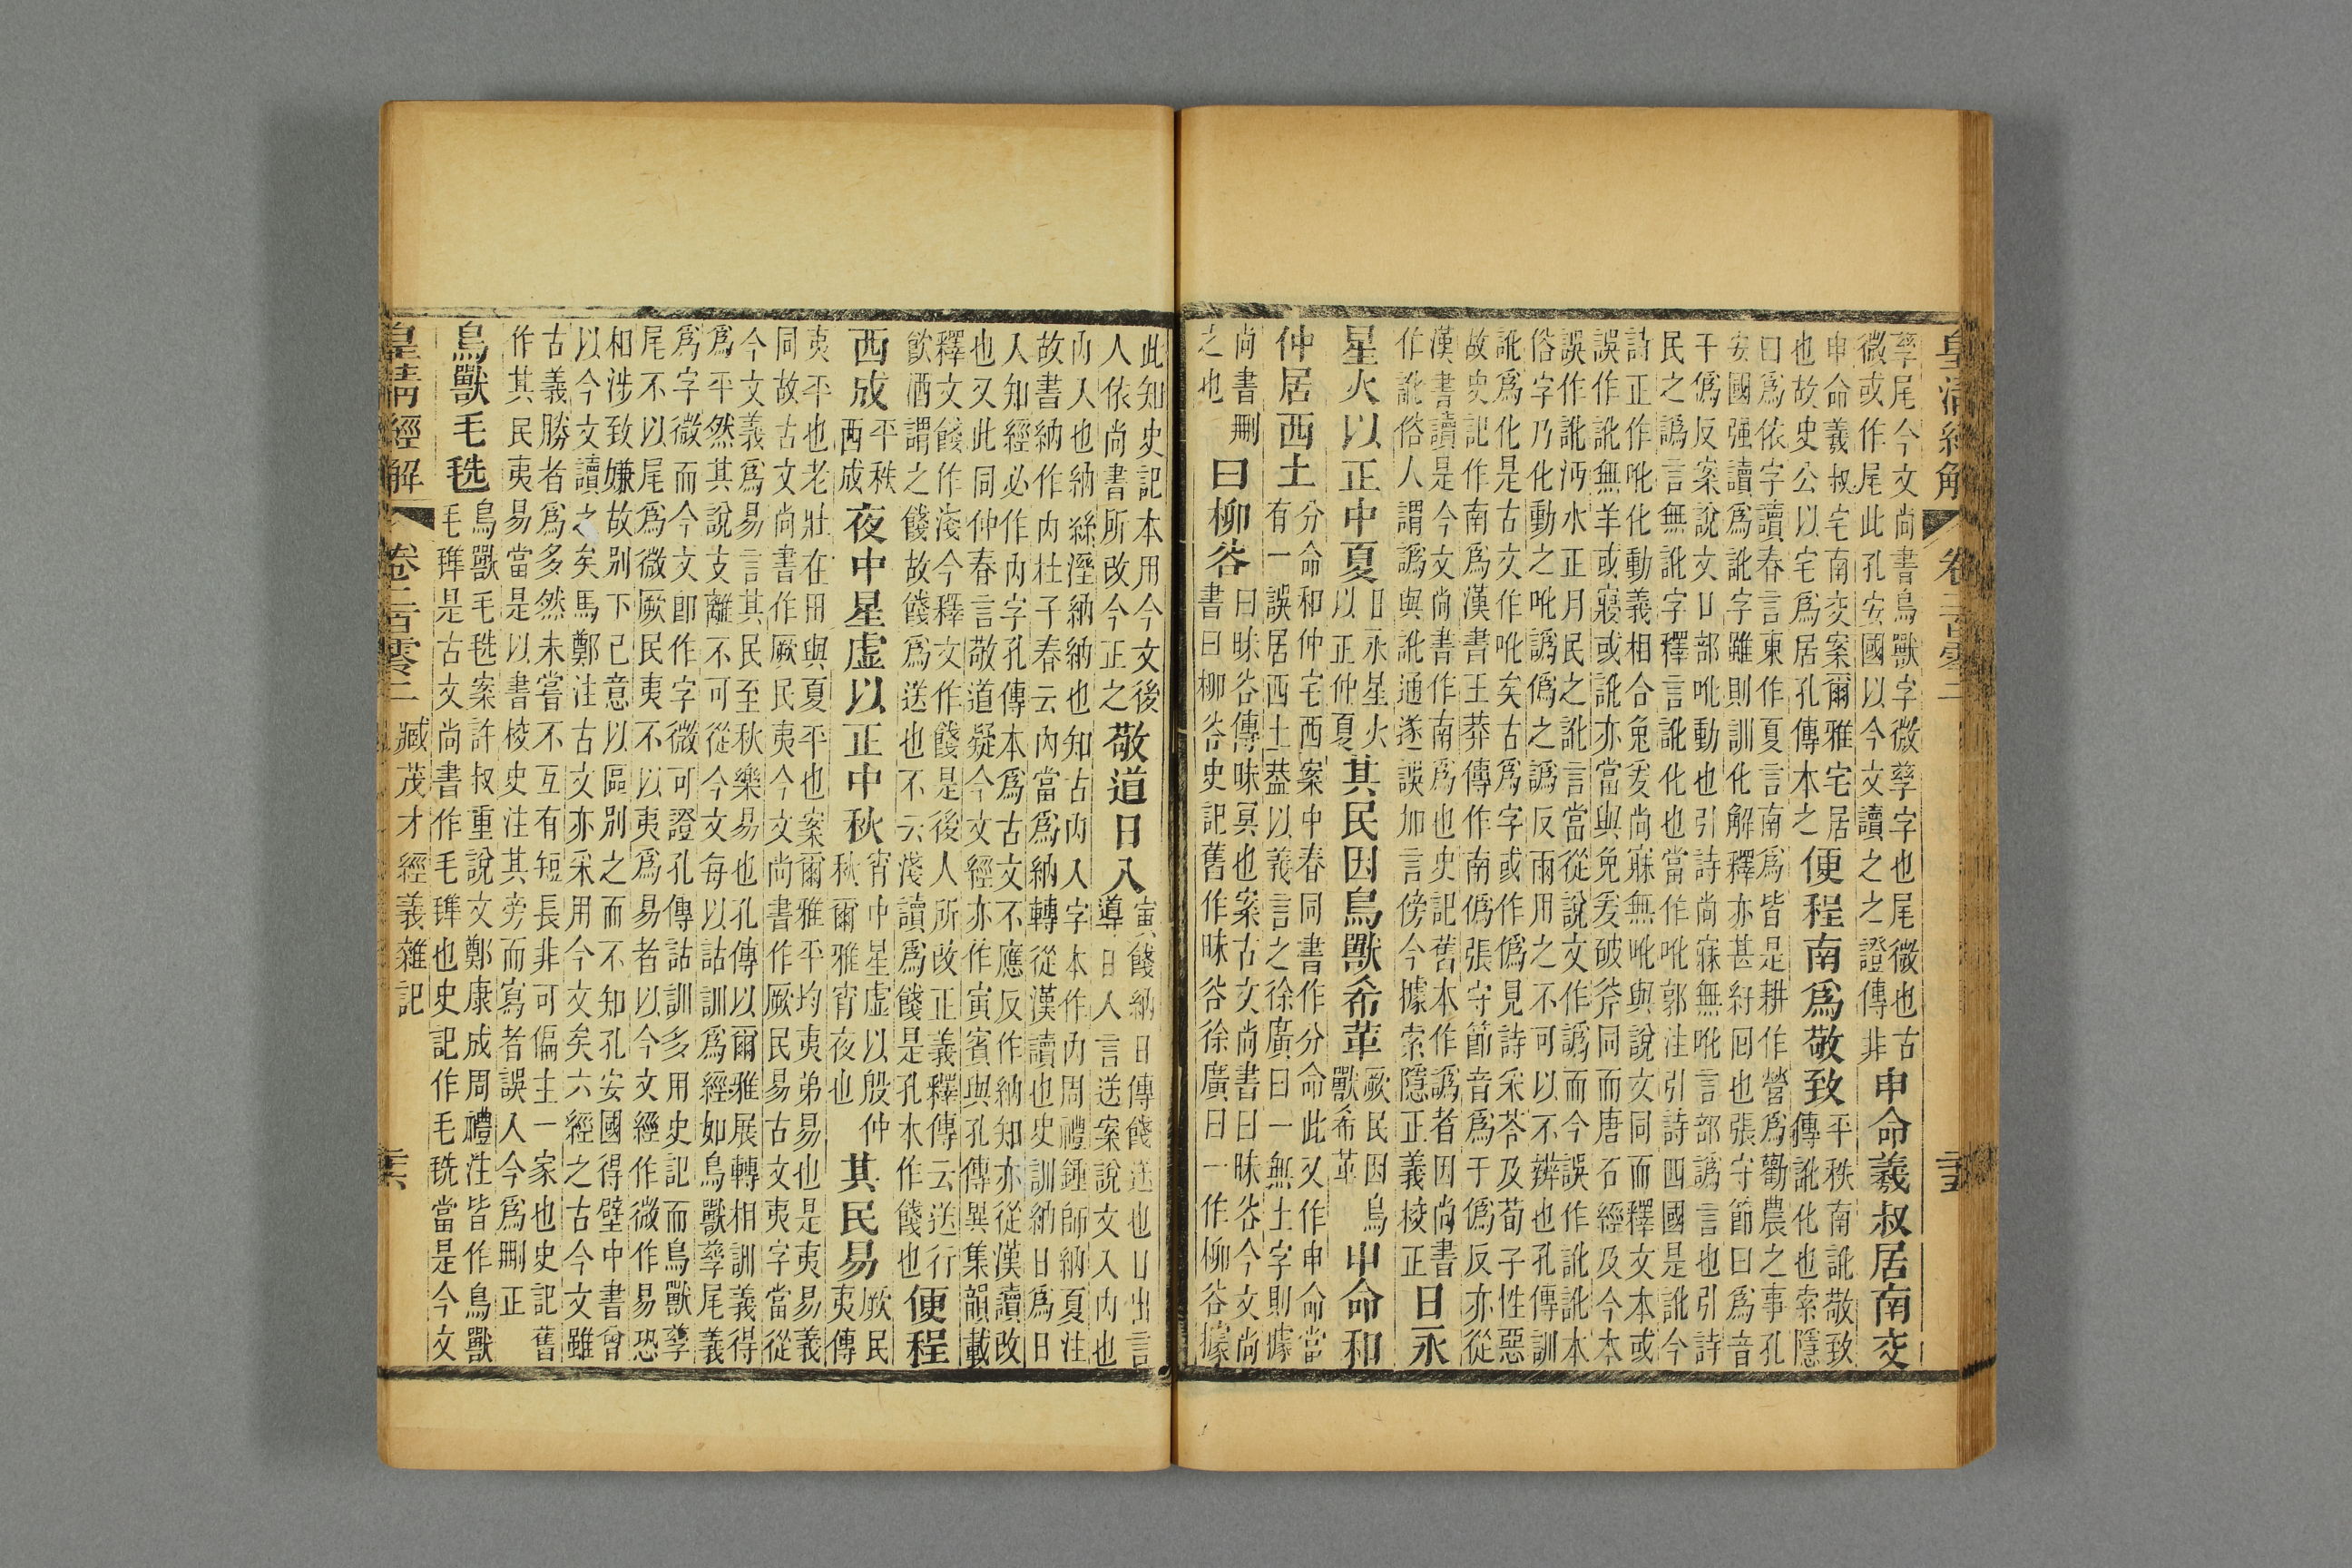 皇清經解
孳尾今文尚書鳥獸字微孳字也尾微也古
微或作尾此孔安國以今文讀之之證傳非
申命羲叔居南交
申命羲叔宅南交案爾雅宅居
也故史公以宅爲居孔傳本之
便程南爲敬致
平秩南訛敬致
傳訛化也索隱
曰爲依字讀春言東作夏言南爲皆是耕作營爲勸農之事孔
安國强讀爲訛字雖則訓化解釋亦甚紆回也張守節曰爲音
于僞反案說文口部吪動也引詩尚寐無吪言部譌言也引詩
民之譌言無訛字釋言訛化也當作吪郭注引詩四國是訛今
詩正作吪化動義相合兔爰尚寐無吪與說文同而釋文本或
誤作訛無羊或寢或訛亦當與兔爰破斧同而唐石經及今本
誤作訛沔水正月民之訛言當從說文作譌而今誤作訛訛本
俗字乃化動之吪譌僞之譌反雨用之不可以不辨也孔傳訓
訛爲化是古文作吪矣古爲字或作僞見詩采苓及荀子性惡
故史記作南爲漢書王莽傳作南僞張守節音爲于僞反亦從
漢書讀是今文尚書作南爲也史記舊本作譌者因尚書
作訛俗人謂譌與訛通遂誤加言傍今據索隱正義校正
日永
星火以正中夏
日永星火
以正仲夏
其民因鳥獸希革
厥民因鳥
獸希革
申命和
仲居西土
分命和仲宅西案中春同書作分命此又作申命當
有一誤居西土葢以義言之徐廣曰一無土字則據
尚書刪
之也
曰柳谷
曰昧谷傳昧冥也案古文尚書曰昧谷今文尚
書曰柳谷史記舊作昧谷徐廣曰一作柳谷據
此知史記本用今文後
人依尚書所改今正之
敬道日入
寅餞納日傳餞送也日出言
導日入言送案說文入內也
內人也納絲溼納納也知古內入字本作內周禮鍾師納夏注
故書納作內杜子春云內當爲納轉從漢讀也史訓納日爲日
人知經必作內字孔傳本爲古文不應反作納知亦從漢讀改
也又此同仲春言敬道疑今文經亦作寅賓與孔傳異集韻載
釋文餞作淺今釋文作餞是後人所改正義釋傳云送行
飲酒謂之餞故餞爲送也不云淺讀爲餞是孔本作餞也
便程
西成
平秩
西成
夜中星虛以正中秋
宵中星虛以殷仲
秋爾雅宵夜也
其民易
厥民
夷傳
夷平也老壯在田與夏平也案爾雅平均夷弟易也是夷易義
同故古文尚書作厥民夷今文尚書作厥民易古文夷字當從
今文義爲易言其民至秋樂易也孔傳以爾雅展轉相訓義得
爲平然其說支離不可從今文每以詁訓爲經如鳥獸孳尾義
爲字微而今文卽作字微可證孔傳詁訓多用史記而鳥獸孳
尾不以尾爲微厥民夷不以夷爲易者以今文經作微作易恐
相涉致嫌故別下己意以區別之而不知孔安國得壁中書曾
以今文讀之矣馬鄭注古文亦采用今文矣六經之古今文雖
古義勝者爲多然未嘗不互有短長非可偏主一家也史記舊
作其民夷易當是以書校史注其旁而寫者誤入今爲刪正
鳥獸毛毨
鳥獸毛毨案許叔重說文鄭康成周禮注皆作鳥獸
毛毪是古文尚書作毛毪也史記作毛毨當是今文
皇清經解
臧茂才經義雜記